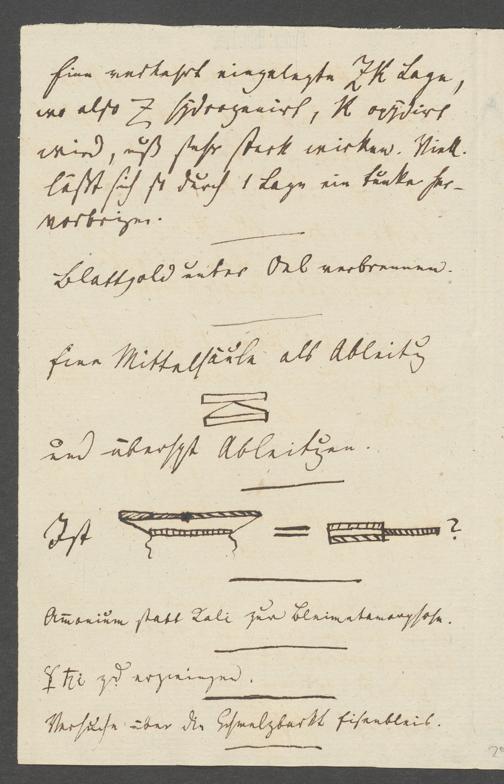 Eine verkehrt eingelegte ZK Lage,
wo also Z hydrogenirt, K oxydirt
wird, muß sehr stark wirken. Viell.
läßt sich so durch 1 Lage ein Funke her-
vorbringen.
Blattgold unter Oel verbrennen.
Eine Mittelsäule als Ableitg
und überhpt Ableitgen.
Ist = ?
Am̄onium statt Kali zur Bleimetamorphose.
zu erzeugen.
Versuche über die Schmelzbarkt